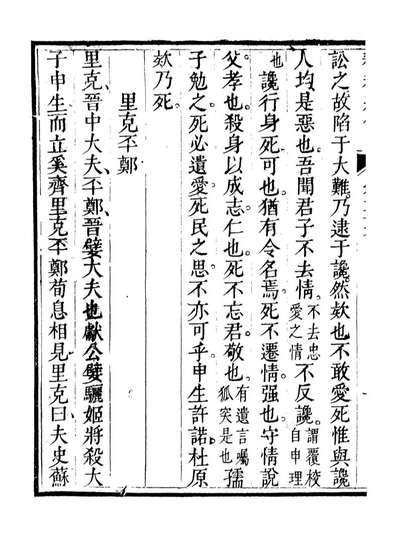 訟之故陷于大難乃逮于讒然欸也不敢愛死惟與讒
人均是惡也吾聞君子不去情不去忠愛之情不反讒謂覆校自申理
也讒行身死可也猶有令名焉死不遷情強也守情說
父孝也殺身以成志仁也死不忘君敬也有遺言囑狐突是也孺
子勉之死必遺愛死民之思不亦可乎申生許諾杜原
欸乃死
里克㔻鄭
里克晉中大夫㔻鄭晉嬖大夫也獻公嬖驪姬將殺大
子申生而立奚齊里克㔻鄭荀息相見里克曰夫史蘇